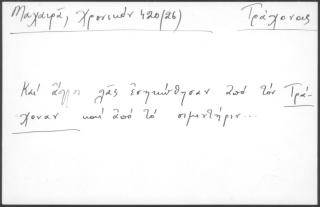 Μαχαιρᾶ, χρονικόν 420/26) Τράχονας
Καί ἄλλοι λᾶς ἐσηκώθησαν ἀπό τόν Τρά-
χοναν καί ἀπό τό σιμιντήριν...